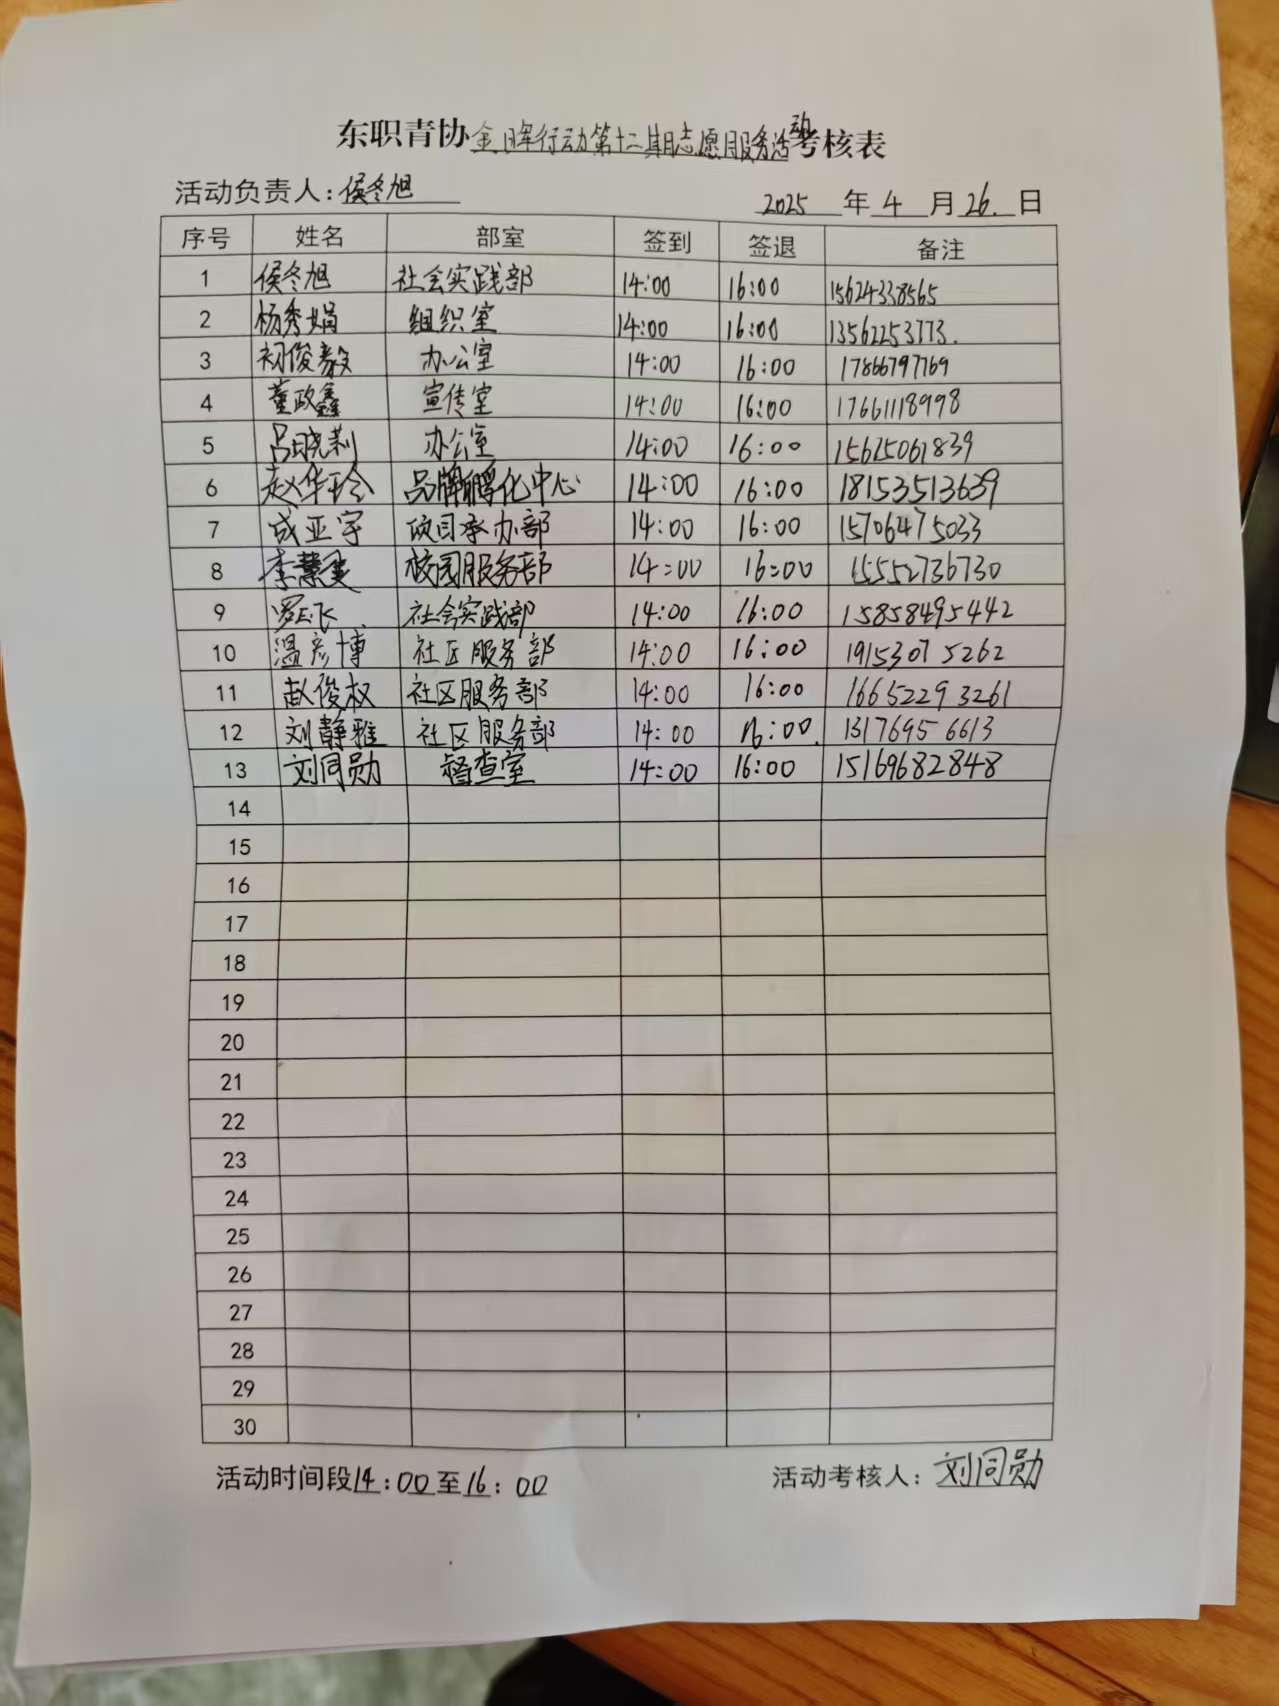 东职青协金晖行动第十二期志愿服务活动考核表
活动负责人：侯冬旭 2025 年 4 月 26. 日
序号 姓名 部室 签到 签退 备注
1 侯冬旭 社会实践部 14:00 16:00 15624338565
2 杨秀娟 组织室 14:00 16:00 13562253773.
3 初俊毅 办公室 14:00 16:00 17866797769
4 董政鑫 宣传室 14:00 16:00 17661118998
5 吕晓莉 办公室 14:00 16:00 15615061839
6 赵华玲 品牌孵化中心 14:00 16:00 18153513639
7 成亚宇 项目承办部 14:00 16:00 15706475033
8 李慧雯 校园服务部 14:00 16:00 15552736730
9 飞 社会实践部 14:00 16:00 15858495442
10 温彦博 社区服务部 14:00 16:00 19153075262
11 赵俊权 社区服务部 14:00 16:00 16652293261
12 刘静雅 社区服务部 14:00 16:00. 13176956613
13 刘同勋 督查室 14:00 16:00 15169682848
14
15
16
17
18
19
20
21
22
23
24
25
26
27
28
29
30
活动时间段14:00至16:00 活动考核人：刘同勋